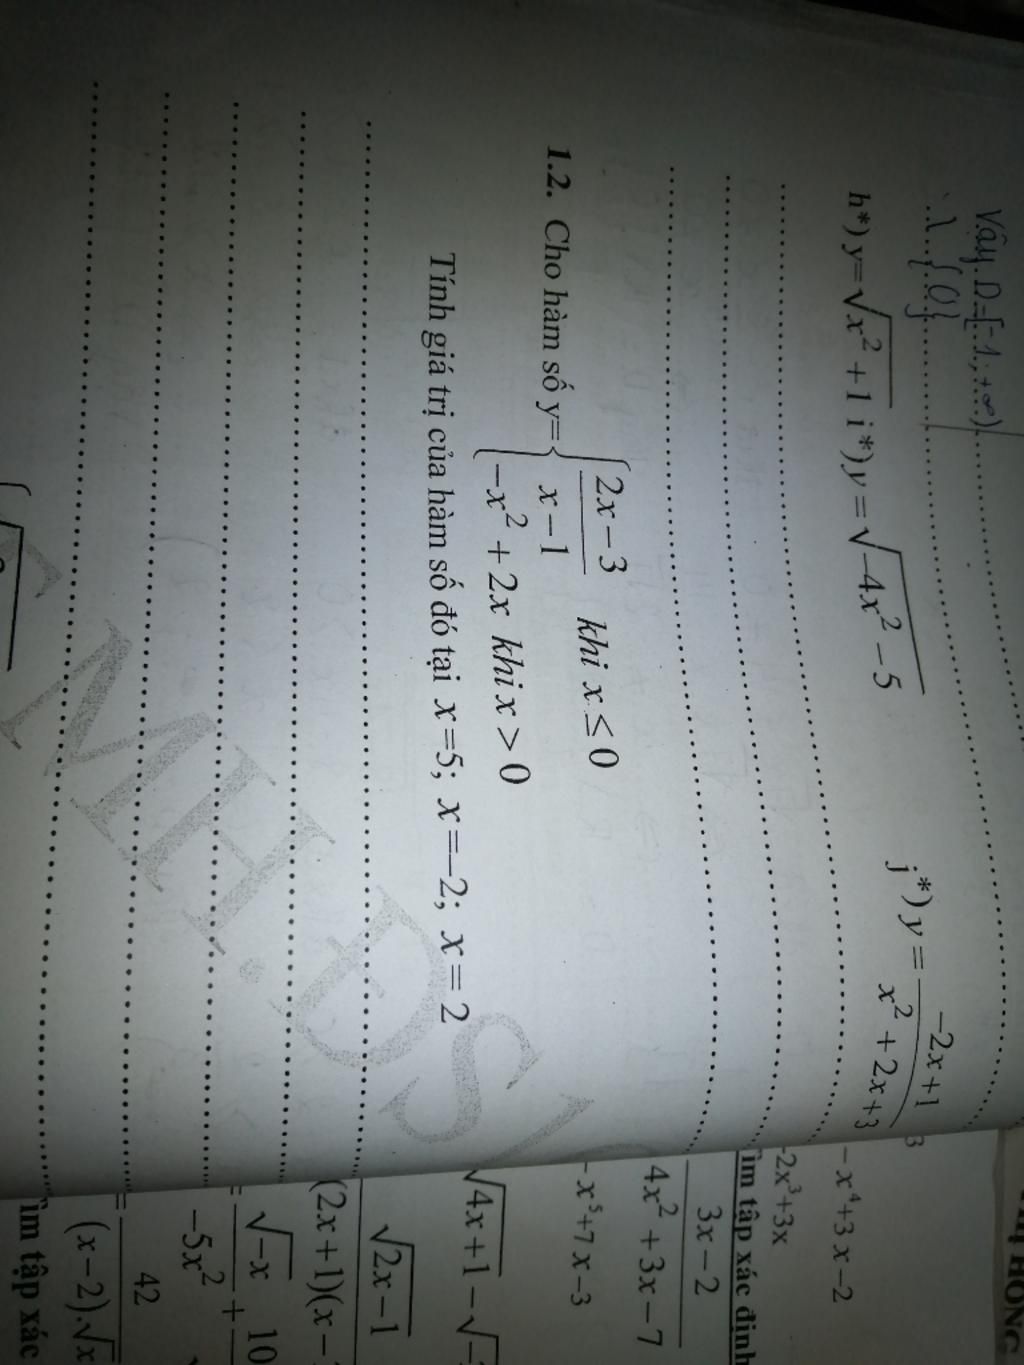 Vậy D=[-1,+∞)
\{0}
h*) y=√(x²+1) i*) y=√(-4x²-5) j*) y=(-2x+1)/(x²+2x+3)
1.2. Cho hàm số y={(2x-3)/(x-1) khi x≤0
-x²+2x khi x>0
Tính giá trị của hàm số đó tại x=5; x=-2; x=2
MH.ĐS
-x⁴+3x-2
-2x³+3x
ìm tập xác định
3x-2
4x²+3x-7
-x⁵+7x-3
√(4x+1)-√
√(2x-1)
(2x+1)(x-
√(-x) 10
-5x² +
42
(x-2).√x
ìm tập xác